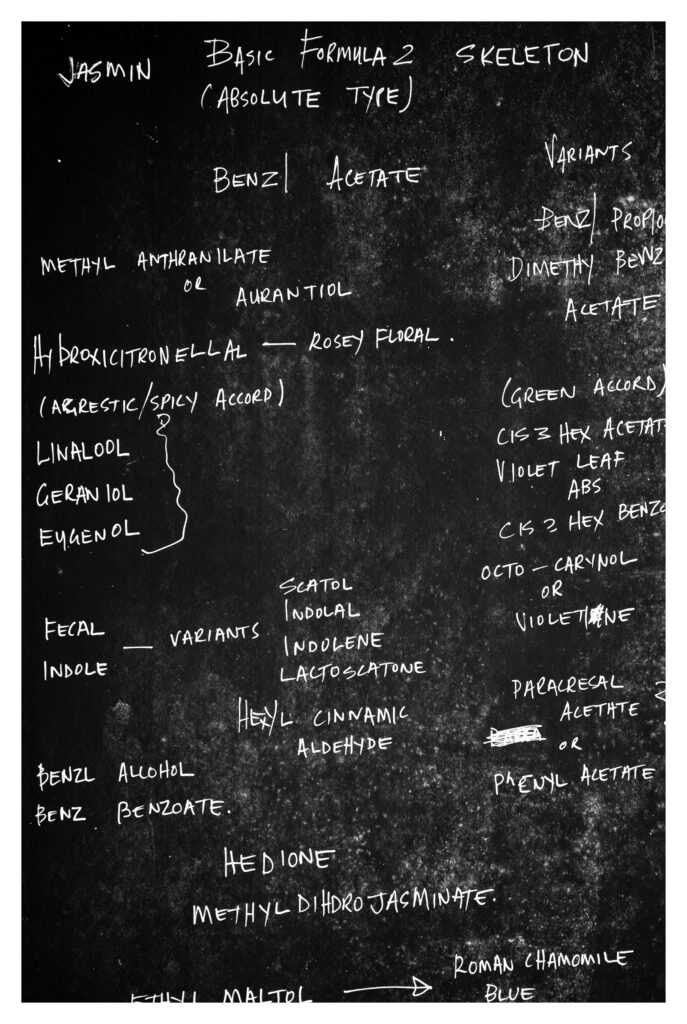 JASMIN BASIC FORMULA 2 SKELETON
(ABSOLUTE TYPE)
BENZL ACETATE
VARIANTS
BENZL PROPIO
DIMETHY BENZ
ACETATE
METHYL ANTHRANILATE
OR
AURANTIOL
HYDROXICITRONELLAL — ROSEY FLORAL.
(AGRESTIC/SPICY ACCORD)
LINALOOL
GERANIOL
EYGENOL
(GREEN ACCORD)
CIS 3 HEX ACETAT
VIOLET LEAF
ABS
CIS 3 HEX BENZO
OCTO - CARYNOL
OR
VIOLETINE
FECAL
INDOLE
— VARIANTS
SCATOL
INDOLAL
INDOLENE
LACTOSCATONE
HEXYL CINNAMIC
ALDEHYDE
PARACRESAL
ACETATE
OR
PHENYL ACETATE
BENZL ALCOHOL
BENZ BENZOATE.
HEDIONE
METHYL DIHDROJASMINATE.
ETHYL MALTOL → ROMAN CHAMOMILE
BLUE